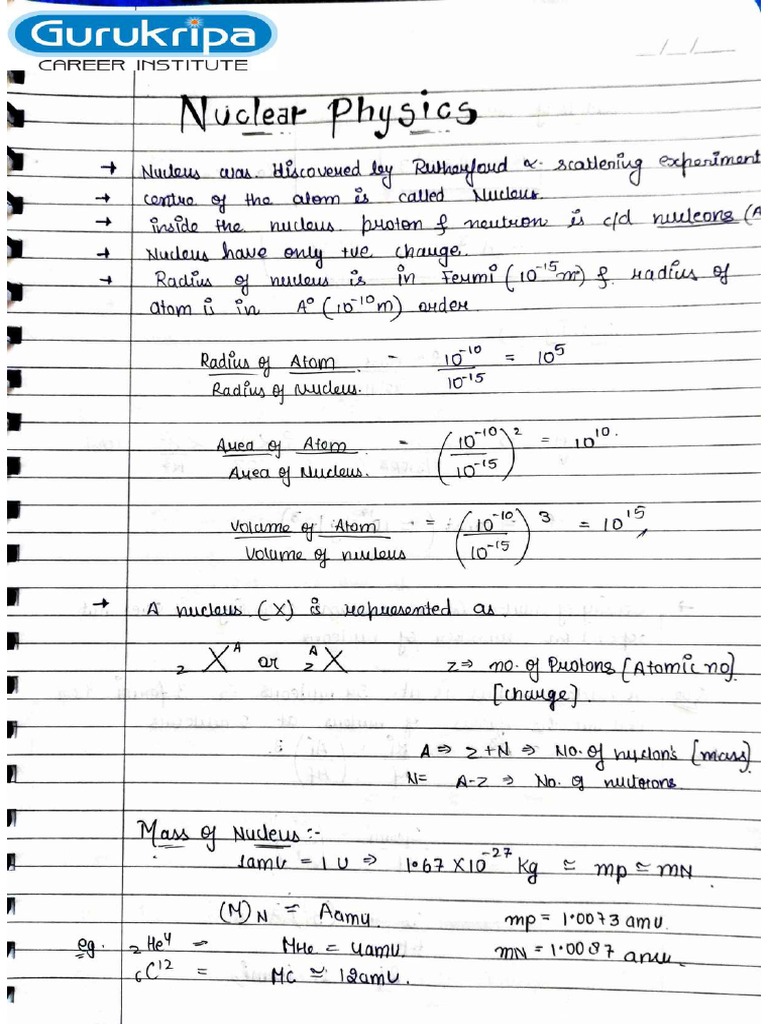 Gurukripa
CAREER INSTITUTE
Nuclear Physics
→ Nucleus was discovered by Rutherford α- scattering experiment
→ centre of the atom is called Nucleus.
→ inside the nucleus proton & neutron is c/d nucleons (A
→ Nucleus have only +ve charge.
→ Radius of nucleus is in Fermi (10⁻¹⁵m) & radius of
atom is in A° (10⁻¹⁰m) order.
Radius of Atom / Radius of Nucleus. - 10⁻¹⁰ / 10⁻¹⁵ = 10⁵
Area of Atom / Area of Nucleus. - (10⁻¹⁰ / 10⁻¹⁵)² = 10¹⁰.
Volume of Atom / Volume of nucleus - = (10⁻¹⁰ / 10⁻¹⁵)³ = 10¹⁵
→ A nucleus (X) is represented as
zXᴬ or ᴬzX z⇒ no. of Protons [Atomic no]
[charge].
A ⇒ z+N ⇒ No. of nucleons [mass]
N= A-z ⇒ No. of neutrons
Mass of Nucleus :-
1amu = 1 U ⇒ 1.67 X10⁻²⁷ kg ≃ mp ≃ mN
(M)N = Aamu. mp = 1.0073 amu.
eg. ₂He⁴ = MHe = 4amu. mN = 1.0087 amu.
₆C¹² = MC ≃ 12amu.